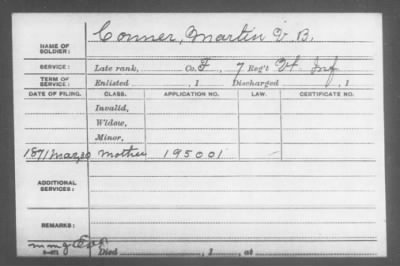 NAME OF SOLDIER: Conner, Martin V. B.
SERVICE: Late rank, Co. F, 7 Reg't Inf
TERM OF SERVICE: Enlisted , 1 Discharged , 1
DATE OF FILING. CLASS. APPLICATION NO. LAW. CERTIFICATE NO.
Invalid,
Widow,
Minor,
1871 Mar 20 Mother 195001
ADDITIONAL SERVICES:
REMARKS:
Died , 1 , at